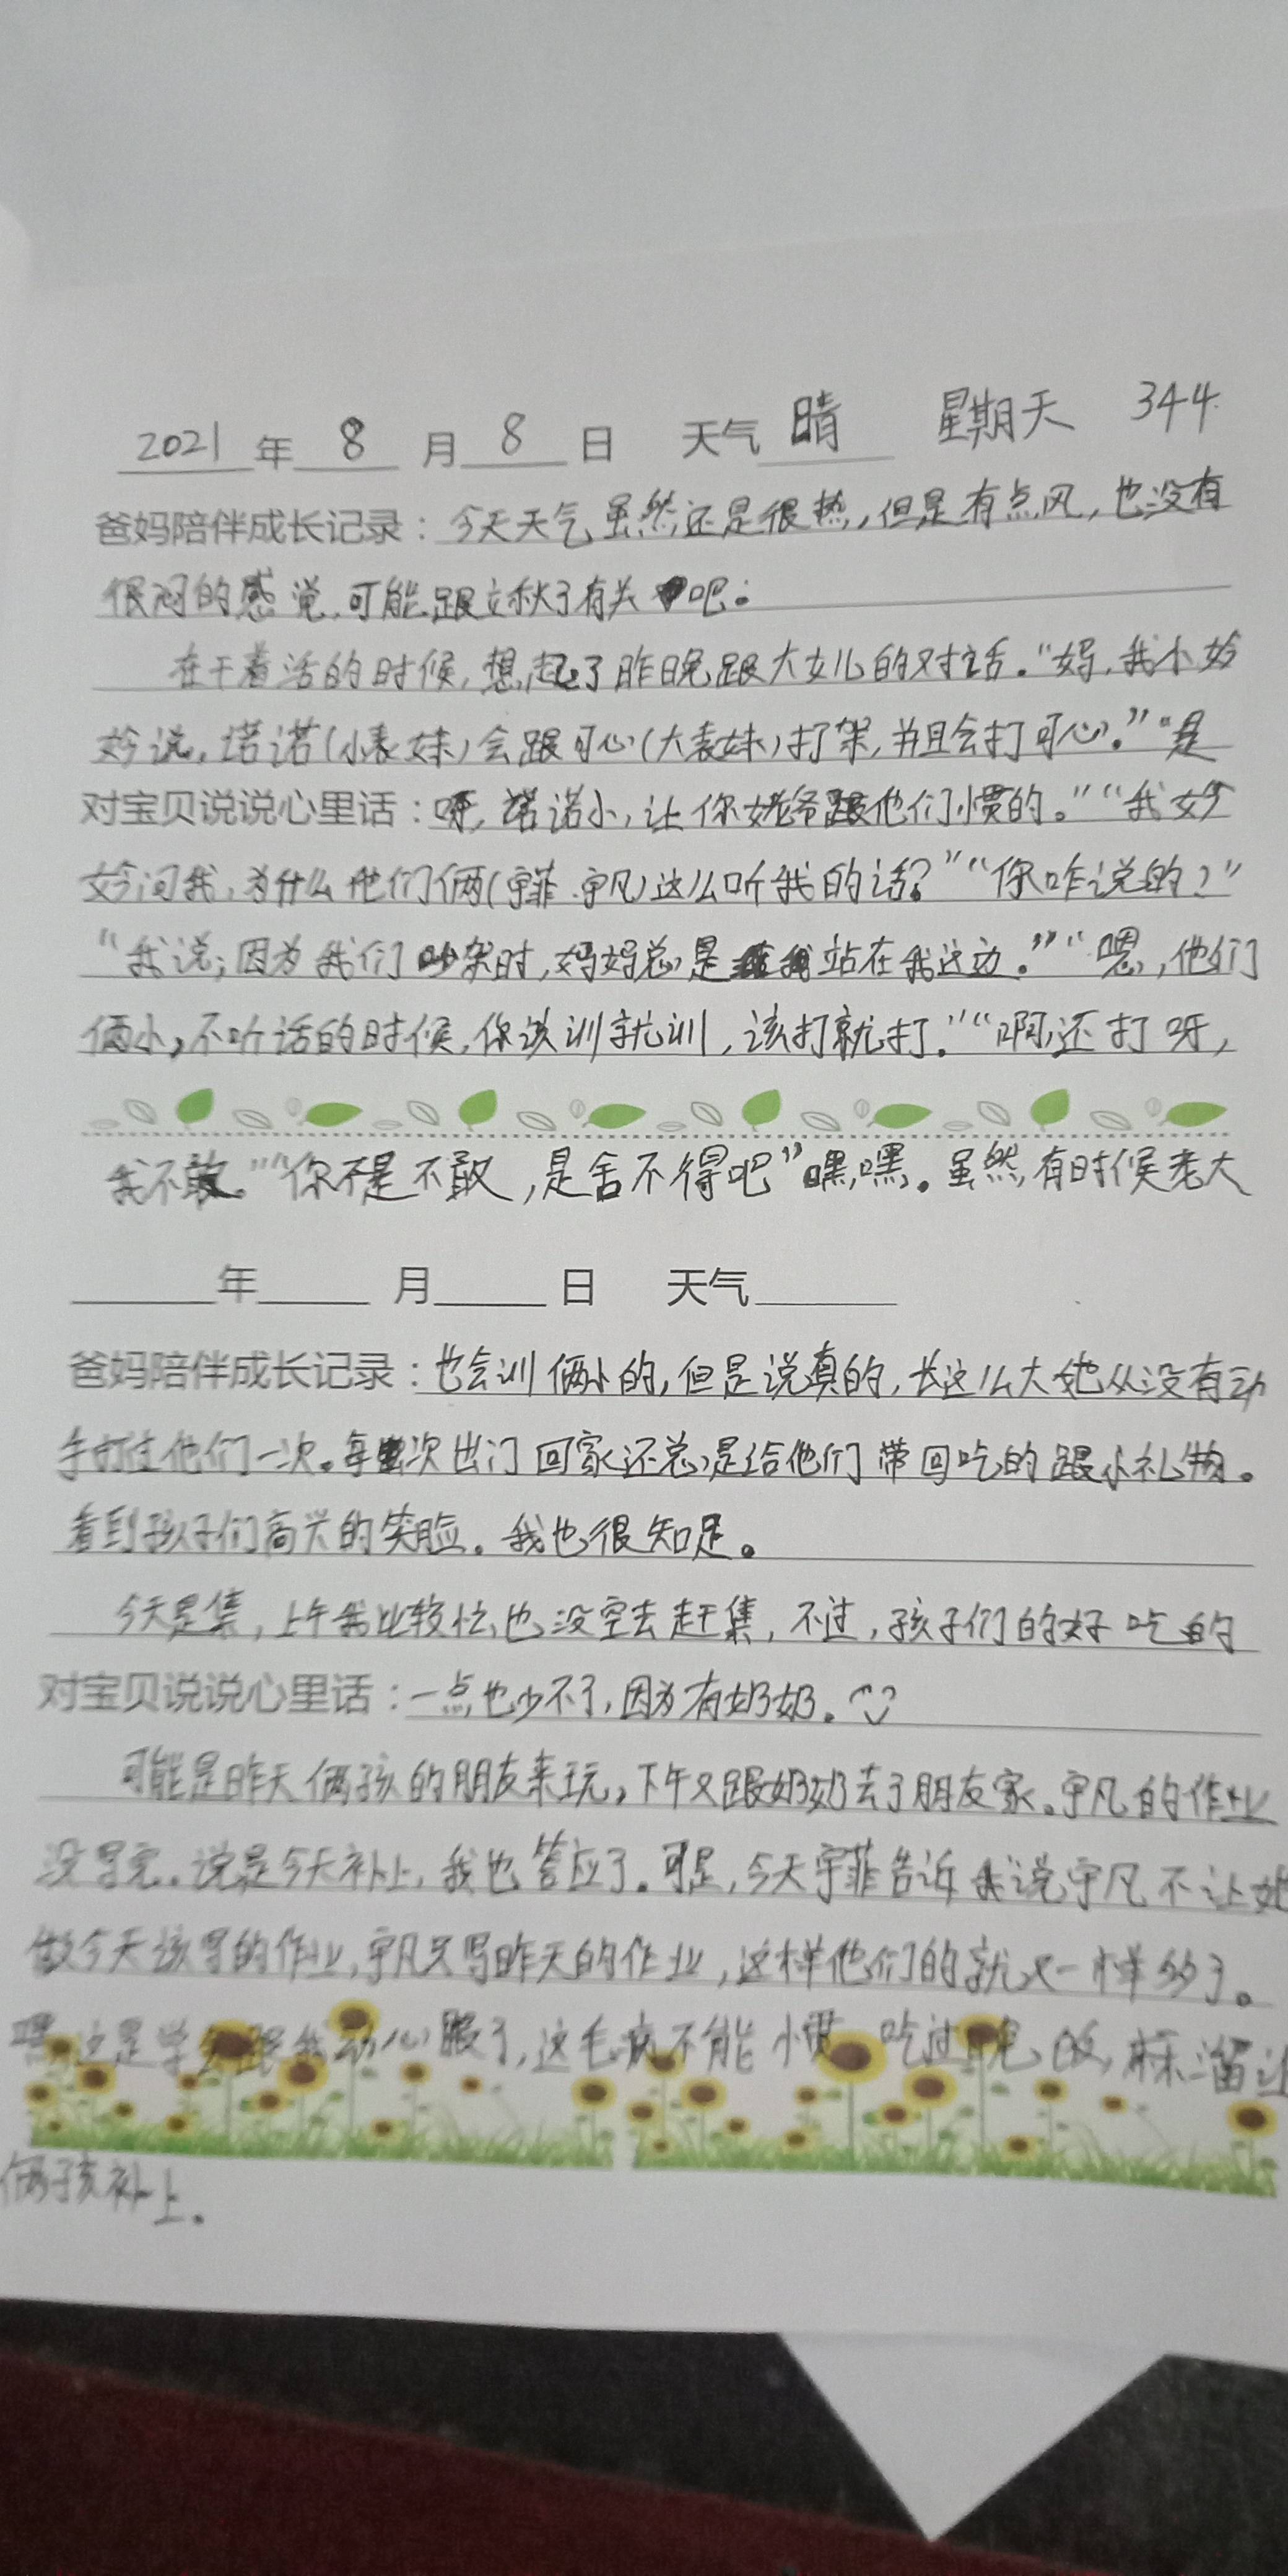 2021年 8 月 8 日 天气 晴 星期天 344
爸妈陪伴成长记录：今天天气虽然还是很热，但是有点风，也没有
很闷的感觉，可能跟立秋了有关吧。
在干着活的时候，想起了昨晚跟大女儿的对话。“妈，我小妗
妗说，诺诺（小表妹）会跟可心（大表妹）打架，并且会打可心。”“是
对宝贝说说心里话：呀，诺诺小，让你姥爷跟他们惯的。”“我妗
妗问我，为什么他们俩（宇菲.宇凡）这么听我的话？”“你咋说的？”
“我说；因为我们吵架时，妈妈总是站在我这边。”“嗯，他们
俩小，不听话的时候，你该训就训，该打就打。”“啊，还打呀，
我不敢。”“你不是不敢，是舍不得吧”嘿嘿。虽然，有时候老大
年 月 日 天气
爸妈陪伴成长记录：也会训俩小的，但是说真的，长这么大她从没有动
手打过他们一次。每次出门回家还总是给他们带回吃的跟小礼物。
看到孩子们高兴的笑脸。我也很知足。
今天是集，上午我比较忙，也没空去赶集，不过，孩子们的好吃的
对宝贝说说心里话：一点也少不了，因为有奶奶。
可能是昨天俩孩的朋友来玩，下午又跟奶奶去了朋友家。宇凡的作业
没写完。说是今天补上，我也答应了。可是，今天宇菲告诉我说宇凡不让她
做今天该写的作业，宇凡只写昨天的作业，这样他们的就又一样多了。
这是学 跟我 心眼了，这毛病不能惯 吃过晚饭，麻溜让
俩孩补上。